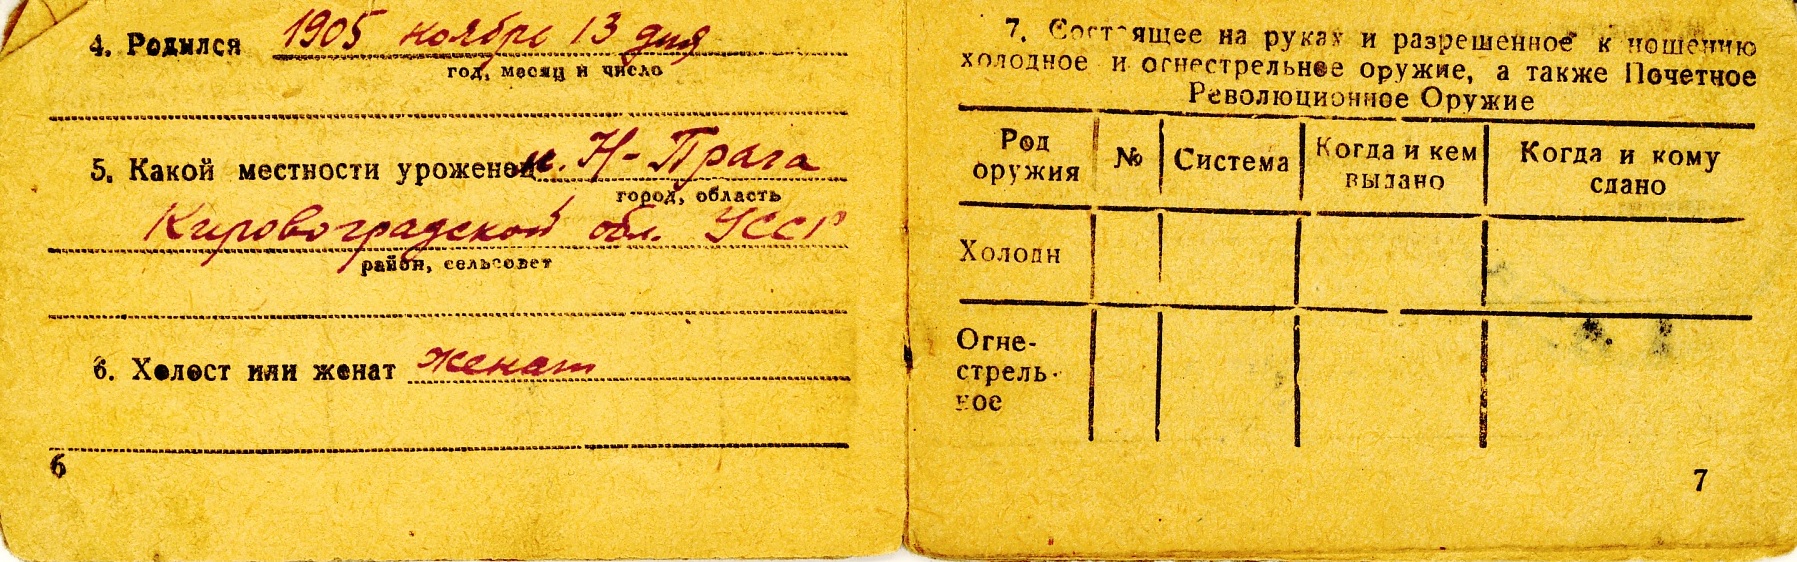 4. Родился 1905 ноябрь 13 дня
год, месяц и число
5. Какой местности уроженец м. Н-Прага
город, область
Кировоградской обл. УССР
район, сельсовет
6. Холост или женат женат
6
7. Состоящее на руках и разрешенное к ношению
холодное и огнестрельное оружие, а также Почетное
Революционное Оружие
Род оружия № Система Когда и кем выдано Когда и кому сдано
Холодн
Огне-
стрель-
ное
7